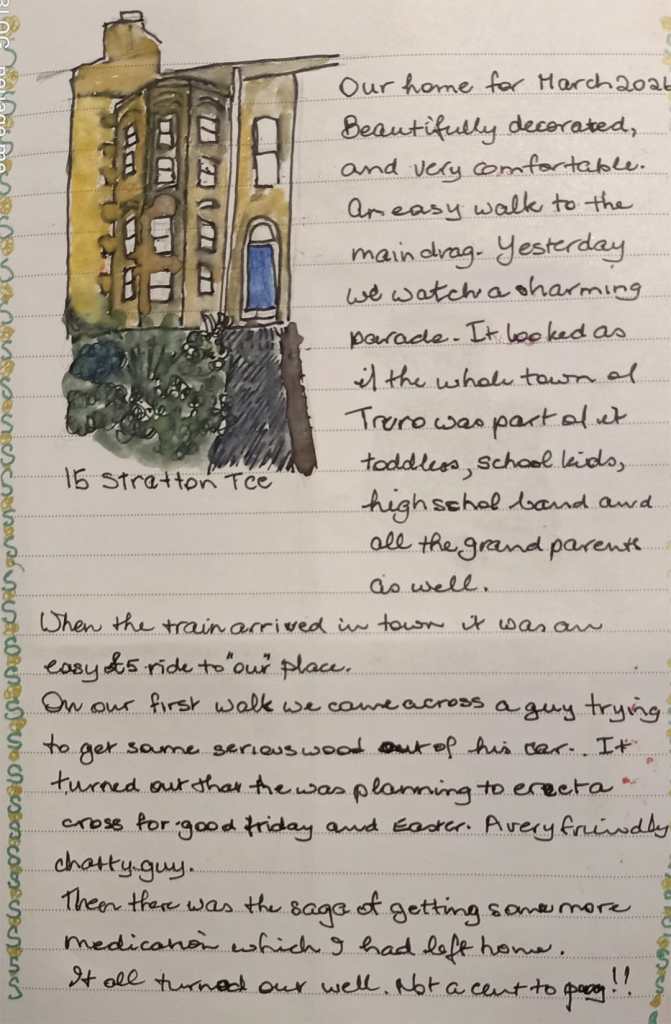 Our home for March 2026
Beautifully decorated,
and very comfortable.
An easy walk to the
main drag. Yesterday
we watch a sharming
parade. It looked as
if the whole town of
Truro was part of it
toddless, school kids,
high schol band and
all the grand parents
as well.
15 Stratton Tce
When the train arrived in town it was an
easy £5 ride to "our" place.
On our first walk we came across a guy trying
to get some serious wood out of his car. It
turned out that he was planning to erect a
cross for good friday and Easter. A very friendly
chatty guy.
Then there was the saga of getting some more
medication which I had left home.
It all turned out well. Not a cent to pay!!